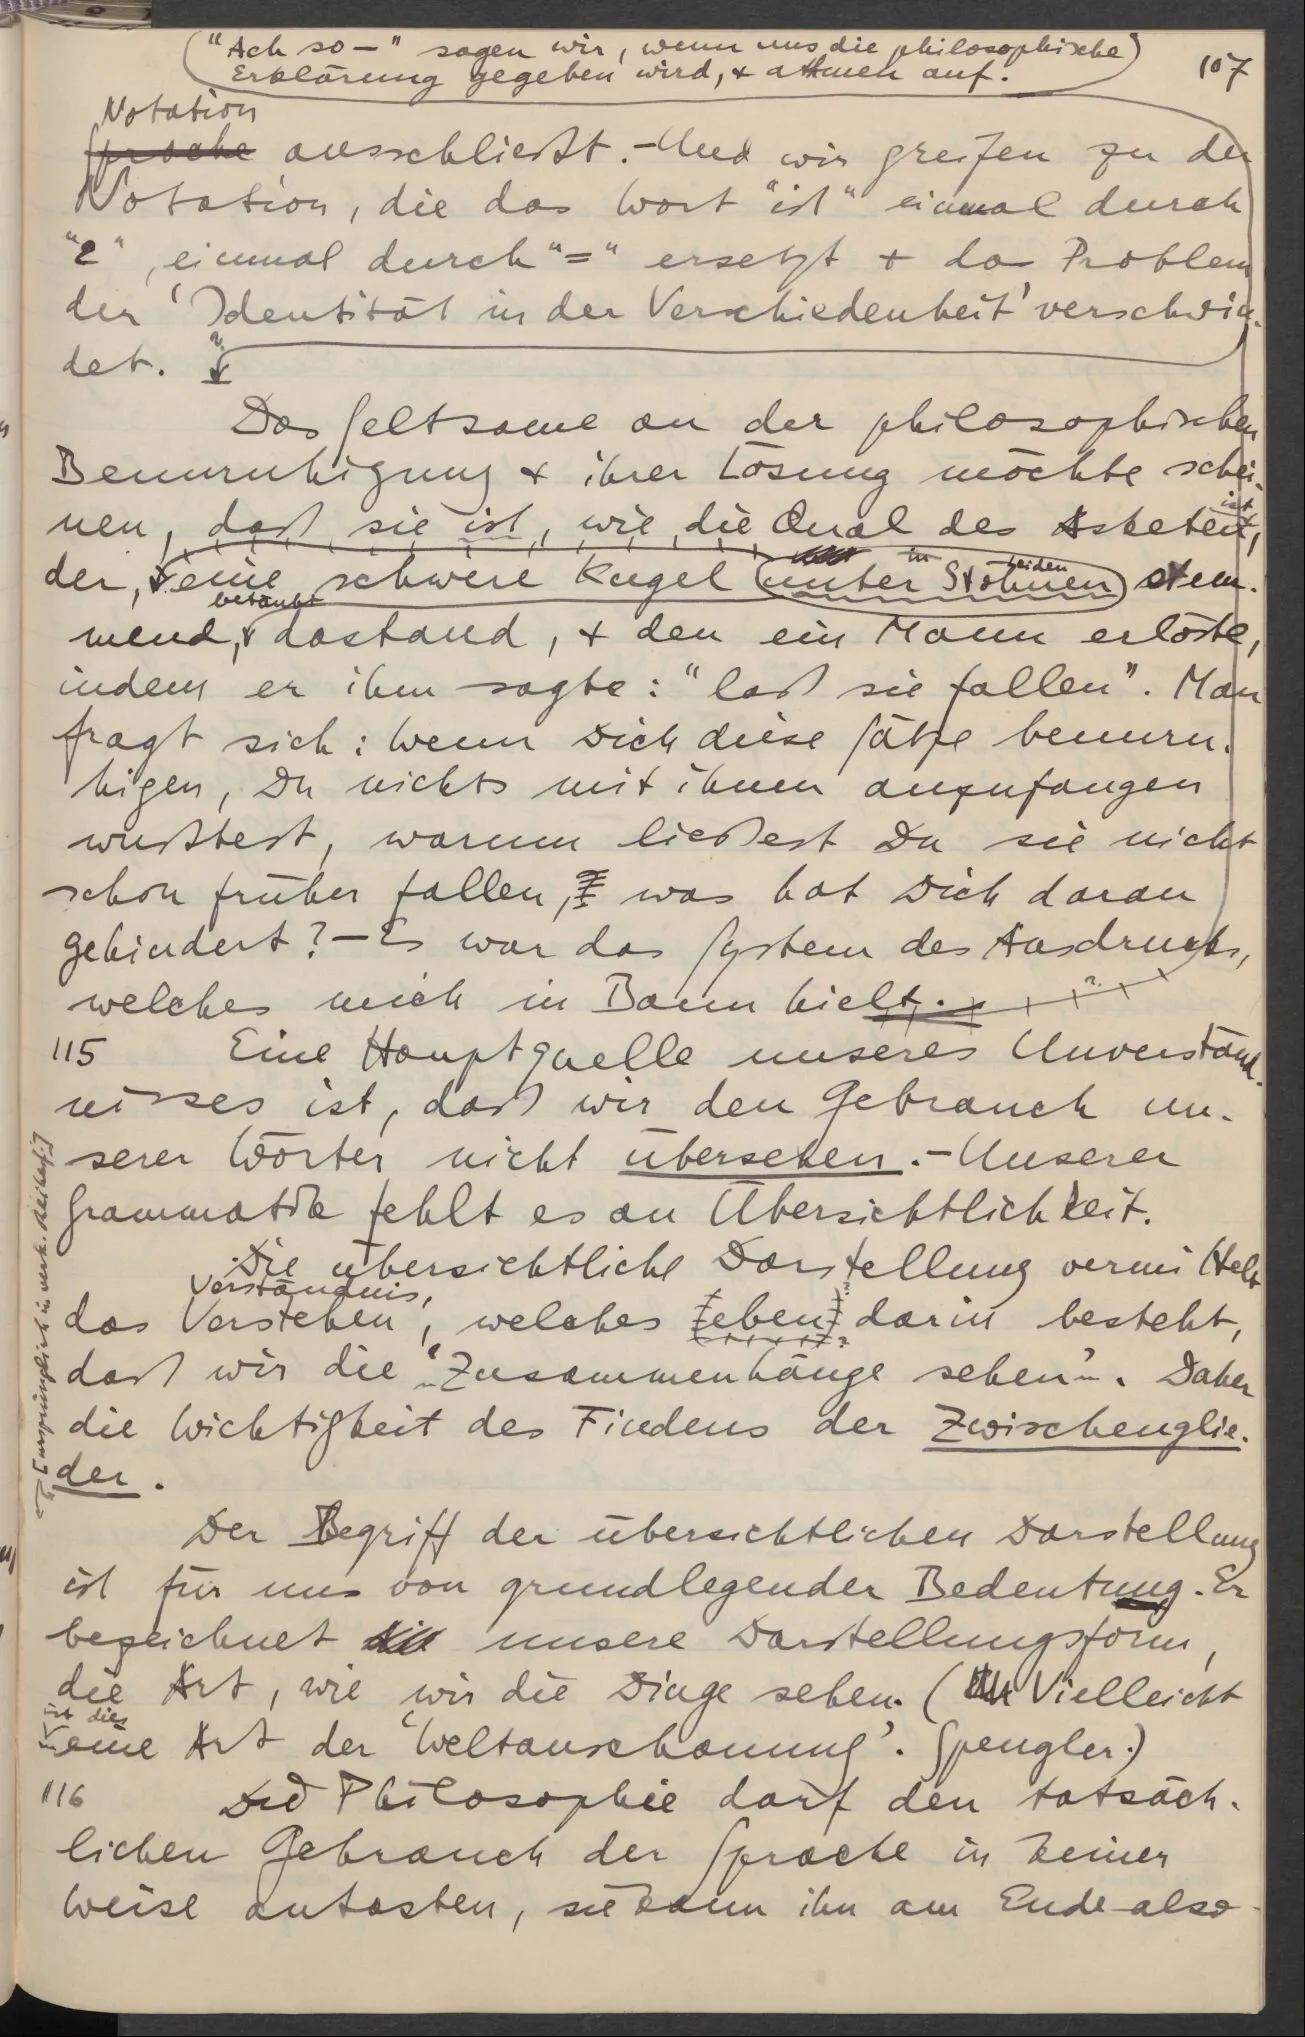 "Ach so—" sagen wir, wenn uns die philosophische
Erklärung gegeben wird, + atmen auf.
107
Notation
Sprache ausschließt. – Und wir greifen zu der
Notation, die das Wort "ist" einmal durch
"ε", einmal durch "=" ersetzt + das Problem
der 'Identität in der Verschiedenheit' verschwin-
det.
Das Seltsame an der philosophischen
Beunruhigung + ihrer Lösung möchte schei-
nen, daß sie ist, wie die Qual des Asketen,
ist
der, eine schwere Kugel unter Stöhnen stem-
in
betäubt
mend, dastand, + den ein Mann erlöste,
indem er ihm sagte: "laß sie fallen". Man
fragt sich: Wenn Dich diese Sätze beunru-
higen, Du nichts mit ihnen anzufangen
wußtest, warum ließest Du sie nicht
schon früher fallen, was hat Dich daran
gehindert? – Es war das System des Ausdrucks,
welches mich in Bann hielt.
115 Eine Hauptquelle unseres Unverständ-
nisses ist, daß wir den Gebrauch un-
serer Wörter nicht übersehen. – Unserer
Grammatik fehlt es an Übersichtlichkeit.
Die übersichtliche Darstellung vermittelt
Verständnis,
das Verstehen, welches eben darin besteht,
daß wir die "Zusammenhänge sehen". Daher
die Wichtigkeit des Findens der Zwischenglie-
der.
Der Begriff der übersichtlichen Darstellung
ist für uns von grundlegender Bedeutung. Er
bezeichnet unsere Darstellungsform,
die Art, wie wir die Dinge sehen. (Vielleicht
ist dies
eine Art der 'Weltanschauung'. Spengler.)
116 Die Philosophie darf den tatsäch-
lichen Gebrauch der Sprache in keiner
Weise antasten, sie kann ihn am Ende also